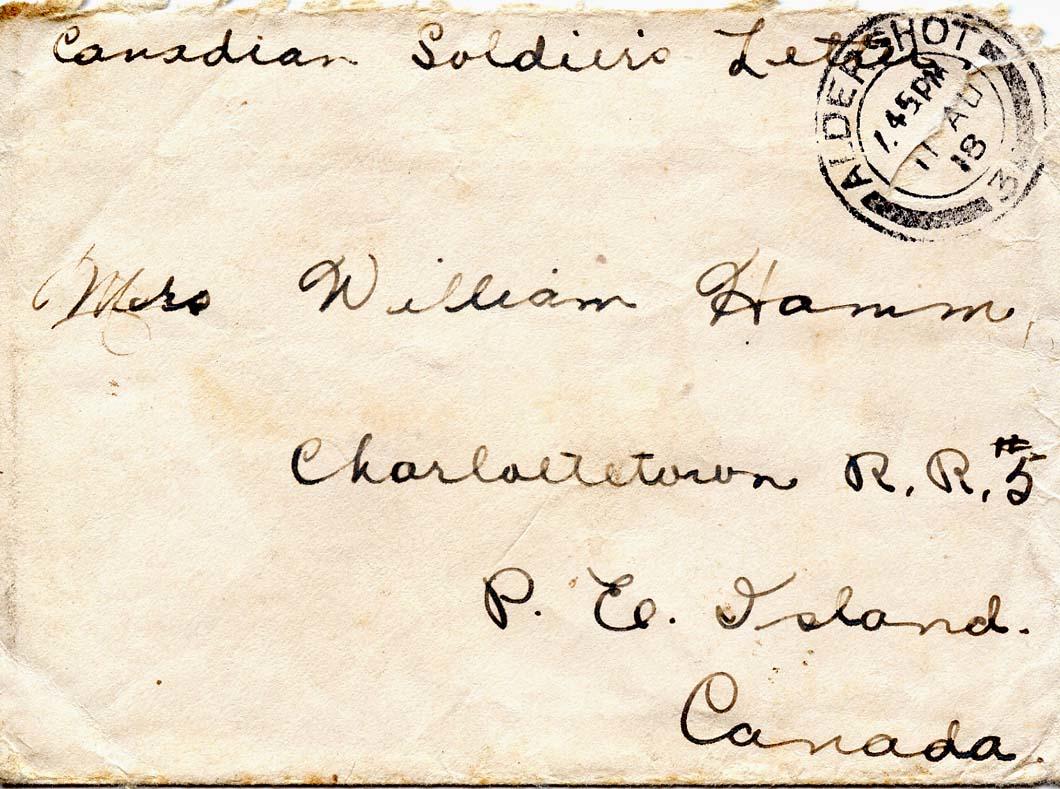 Canadian Soldiers Letter
ALDERSHOT
7.45PM
11 AU
18
3
Mrs William Hamm,
Charlottetown R.R.#5
P. E. Island.
Canada.